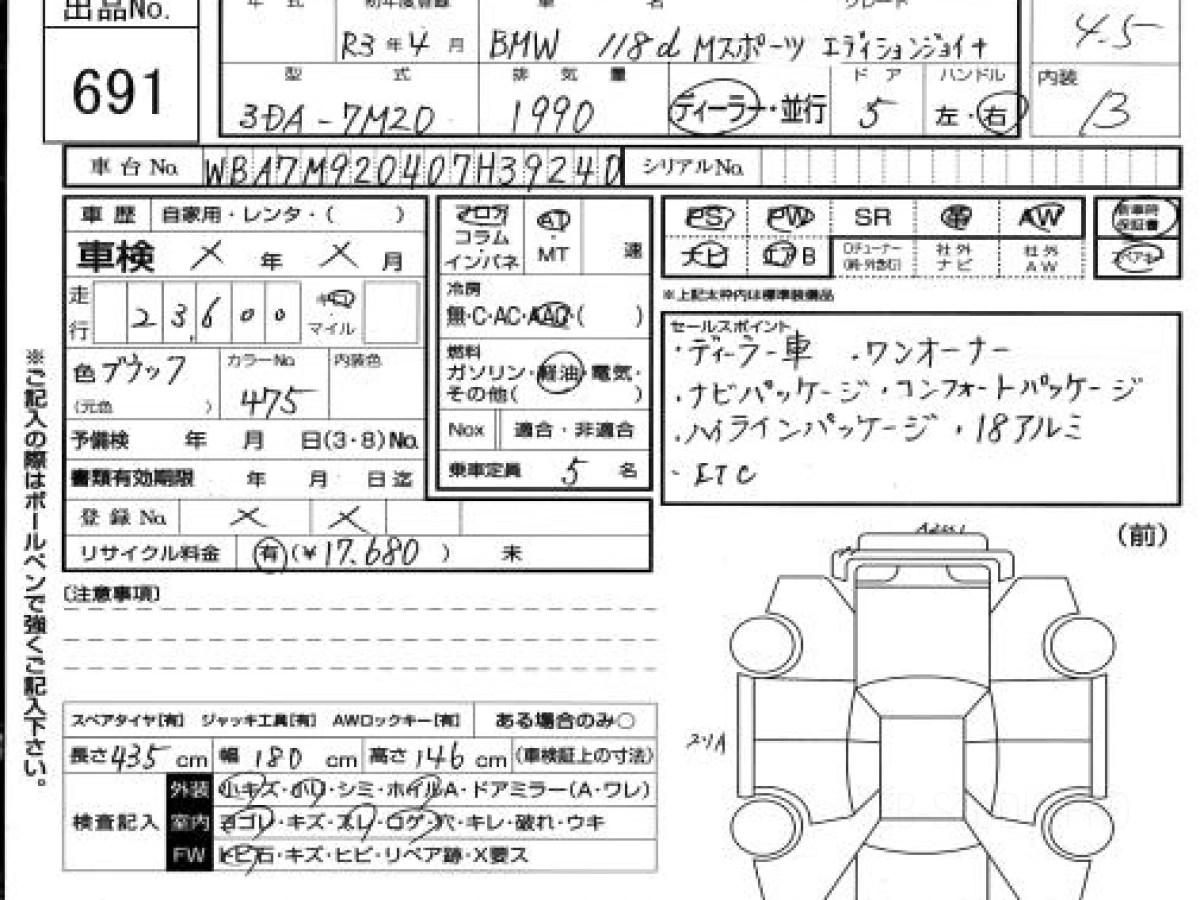 出品No.
691
年 式 初年度登録 車 名 グレード
R3年4月 BMW 118d Mスポーツ エディションジョイ+ 4.5
型 式 排 気 量 ディーラー・並行 ドア ハンドル 内装
3DA-7M20 1990 5 左・右 B
車台No. WBA7M920407H39240 シリアルNo.
車歴 自家用・レンタ・( )
車検 × 年 × 月
走行 23,600 キロ マイル
色 ブラック カラーNo. 475 内装色
(元色 )
予備検 年 月 日(3・8)No.
書類有効期限 年 月 日迄
登録No. × ×
リサイクル料金 有(¥17,680 ) 未
フロア・コラム・インパネ AT・MT 速
冷房
無・C・AC・AAC・( )
燃料
ガソリン・軽油・電気・
その他( )
Nox 適合・非適合
乗車定員 5 名
PS PW SR 革 AW 新車時保証書
ナビ B 社外ナビ 社外AW スペアキー
※上記太枠内は標準装備品
セールスポイント
・ディーラー車 ・ワンオーナー
・ナビパッケージ・コンフォートパッケージ
・ハイラインパッケージ・18アルミ
・ETC
※ご記入の際はボールペンで強くご記入下さい。
〔注意事項〕
(前)
スペアタイヤ[有] ジャッキ工具[有] AWロックキー[有] ある場合のみ○
長さ435cm 幅180cm 高さ146cm (車検証上の寸法)
検査記入
外装 小キズ・小凹・シミ・ホイルA・ドアミラー(A・ワレ)
室内 ヨゴレ・キズ・スレ・コゲ・穴・キレ・破れ・ウキ
FW トビ石・キズ・ヒビ・リペア跡・X要ス